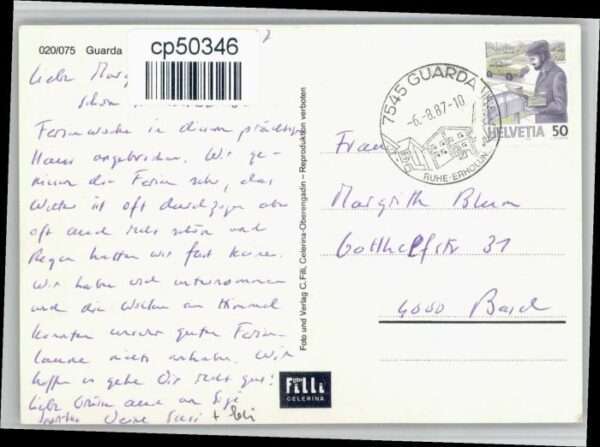 020/075 Guarda
cp50346
Liebe Marg
Schon
Ferienwoche in diesem prächtigen
Haus angebrochen. Wir ge-
niessen die Ferien sehr, das
Wetter ist oft durchzogen aber
oft auch sehr schön und
Regen hatten wir fast keinen.
Wir haben viel unternommen
und die Wolken am Himmel
konnten unsrer guten Ferien-
laune nichts anhaben. Wir
hoffen es gehe Dir recht gut!
Liebe Grüsse auch an
Deine Susi +
Foto und Verlag C. Filli, Celerina-Oberengadin – Reproduktion verboten
FOTO
Filli
CELERINA
7545 GUARDA
-6.-8.87-10
RUHE-ERHOLUN
HELVETIA 50
Frau
Margrith Blum
Gotthelfstr 31
4000 Basel